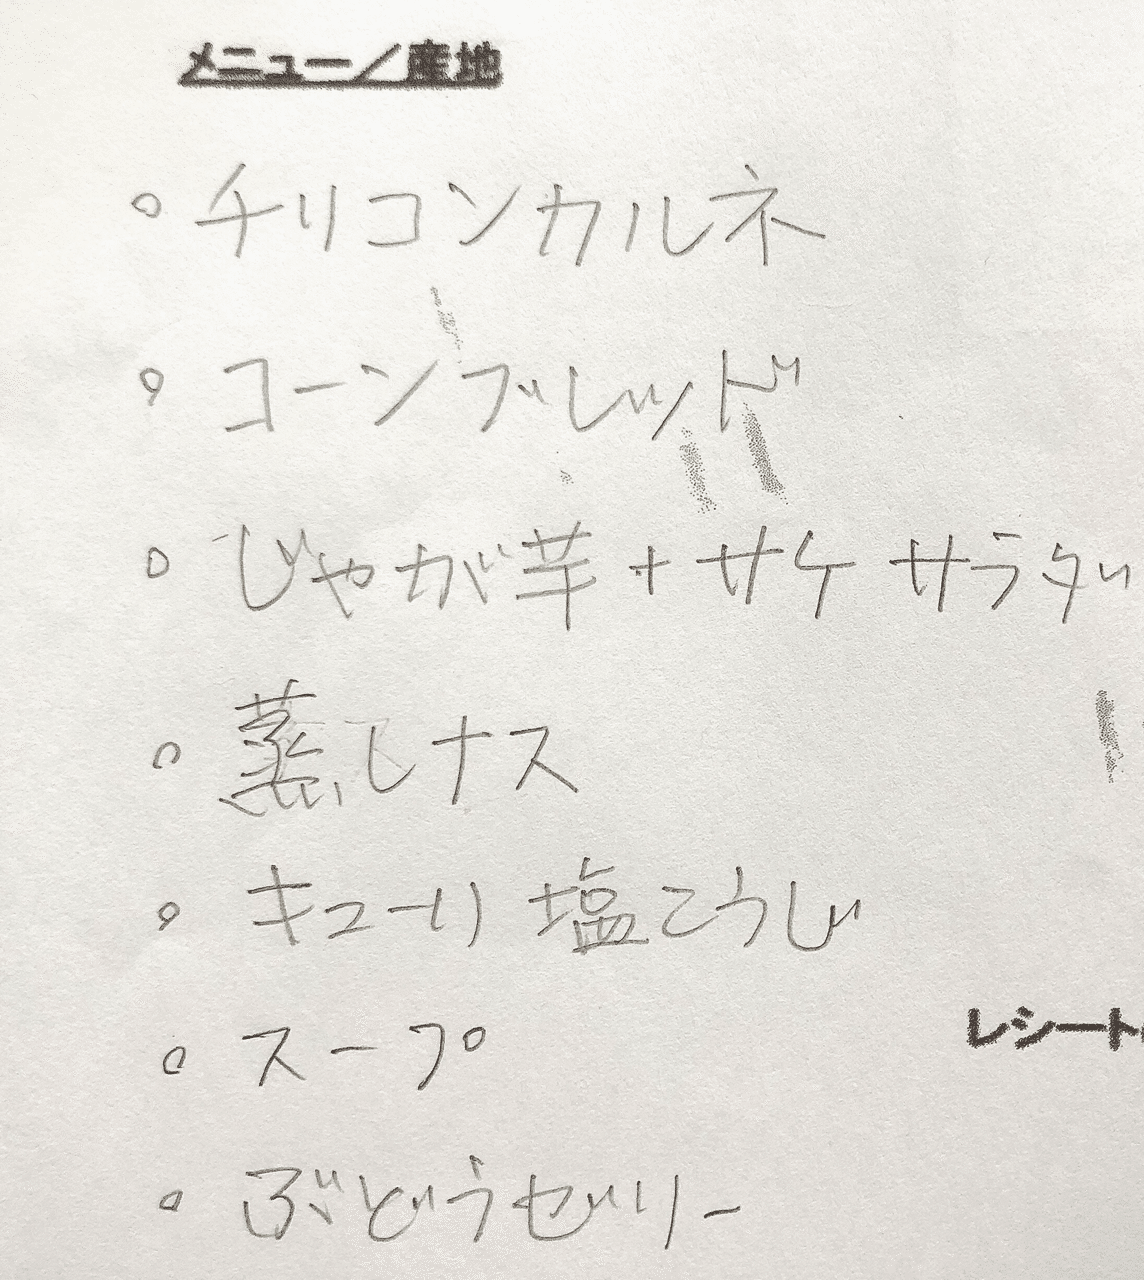 メニュー／産地
。チリコンカルネ
。コーンブレッド
。じゃが芋+サケ サラダ
。蒸しナス
。キューリ 塩こうじ
レシート
。スープ
。ぶどうゼリー